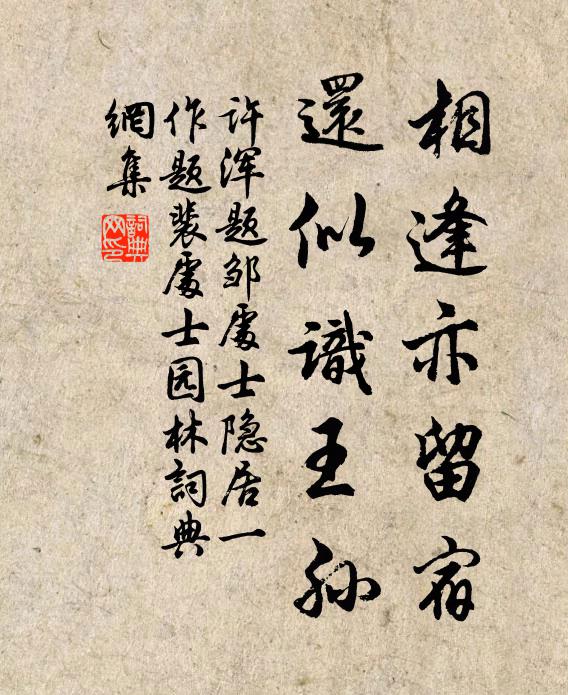 相逢亦留宿
還似識王孫
许浑题邹處士隐居一
作题裴處士园林詞典
網集
詞典网印